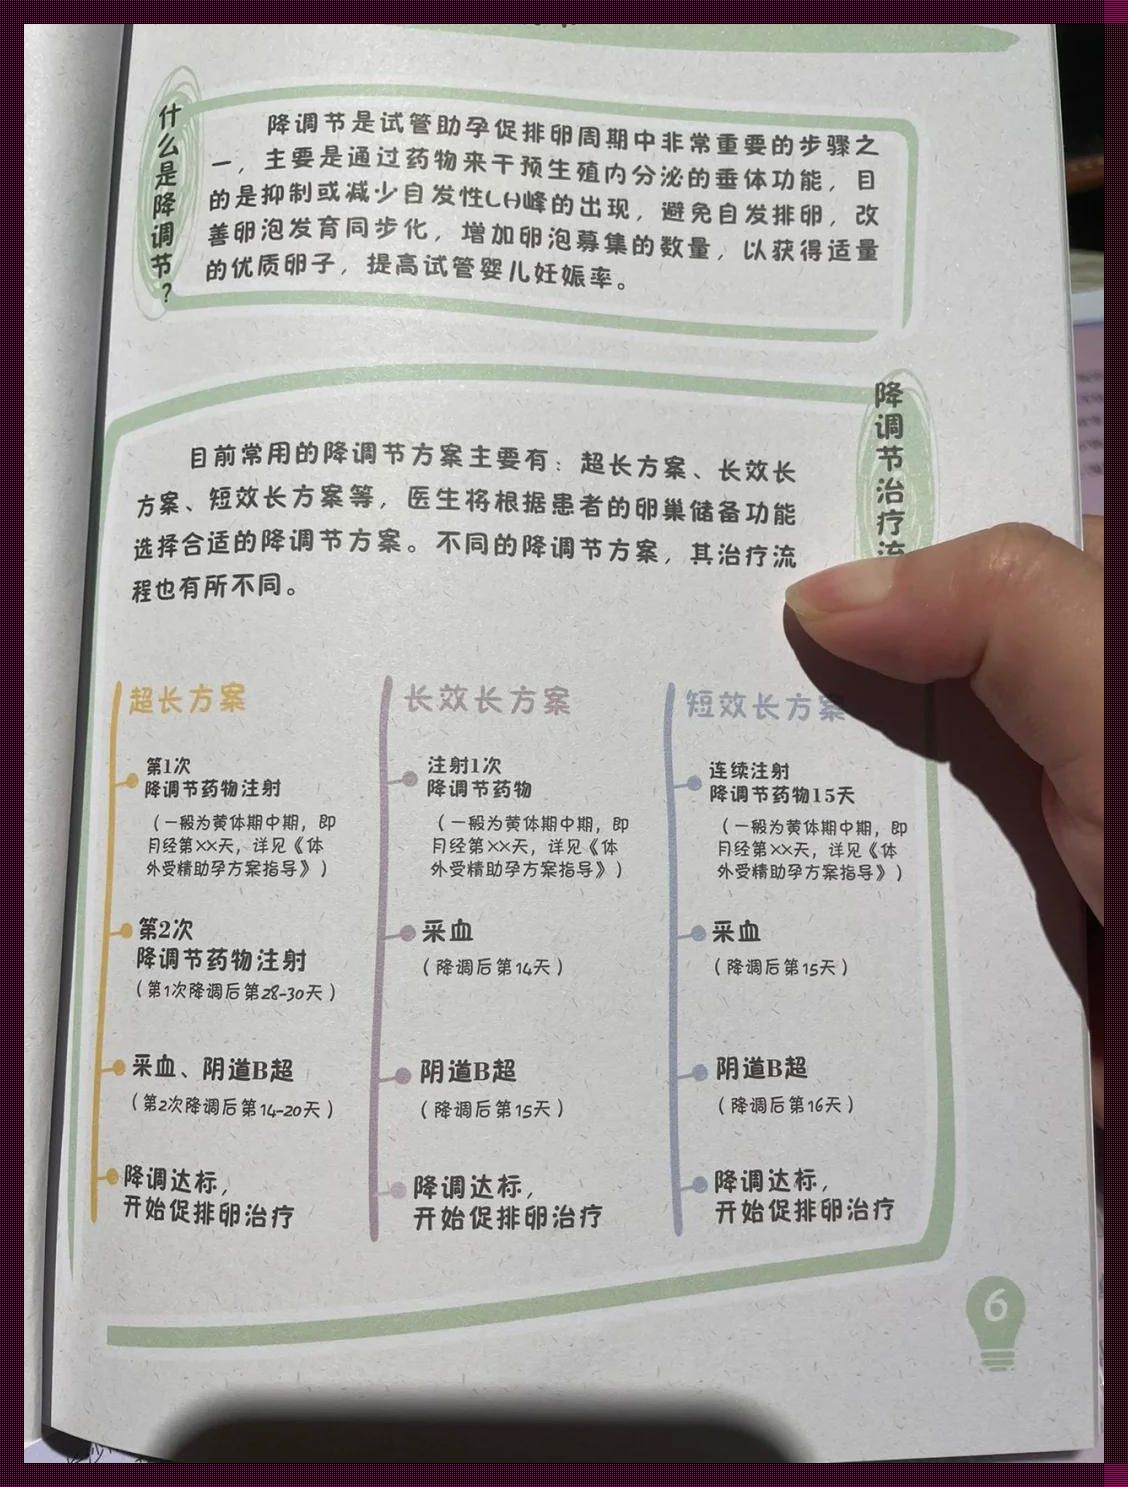 什么是降调节？
降调节是试管助孕促排卵周期中非常重要的步骤之
一，主要是通过药物来干预生殖内分泌的垂体功能，目
的是抑制或减少自发性LH峰的出现，避免自发排卵，改
善卵泡发育同步化，增加卵泡募集的数量，以获得适量
的优质卵子，提高试管婴儿妊娠率。
降调节治疗流
目前常用的降调节方案主要有：超长方案、长效长
方案、短效长方案等，医生将根据患者的卵巢储备功能
选择合适的降调节方案。不同的降调节方案，其治疗流
程也有所不同。
超长方案
第1次
降调节药物注射
（一般为黄体期中期，即
月经第××天，详见《体
外受精助孕方案指导》）
第2次
降调节药物注射
（第1次降调后第28-30天）
采血、阴道B超
（第2次降调后第14-20天）
降调达标，
开始促排卵治疗
长效长方案
注射1次
降调节药物
（一般为黄体期中期，即
月经第××天，详见《体
外受精助孕方案指导》）
采血
（降调后第14天）
阴道B超
（降调后第15天）
降调达标，
开始促排卵治疗
短效长方案
连续注射
降调节药物15天
（一般为黄体期中期，即
月经第××天，详见《体
外受精助孕方案指导》）
采血
（降调后第15天）
阴道B超
（降调后第16天）
降调达标，
开始促排卵治疗
6